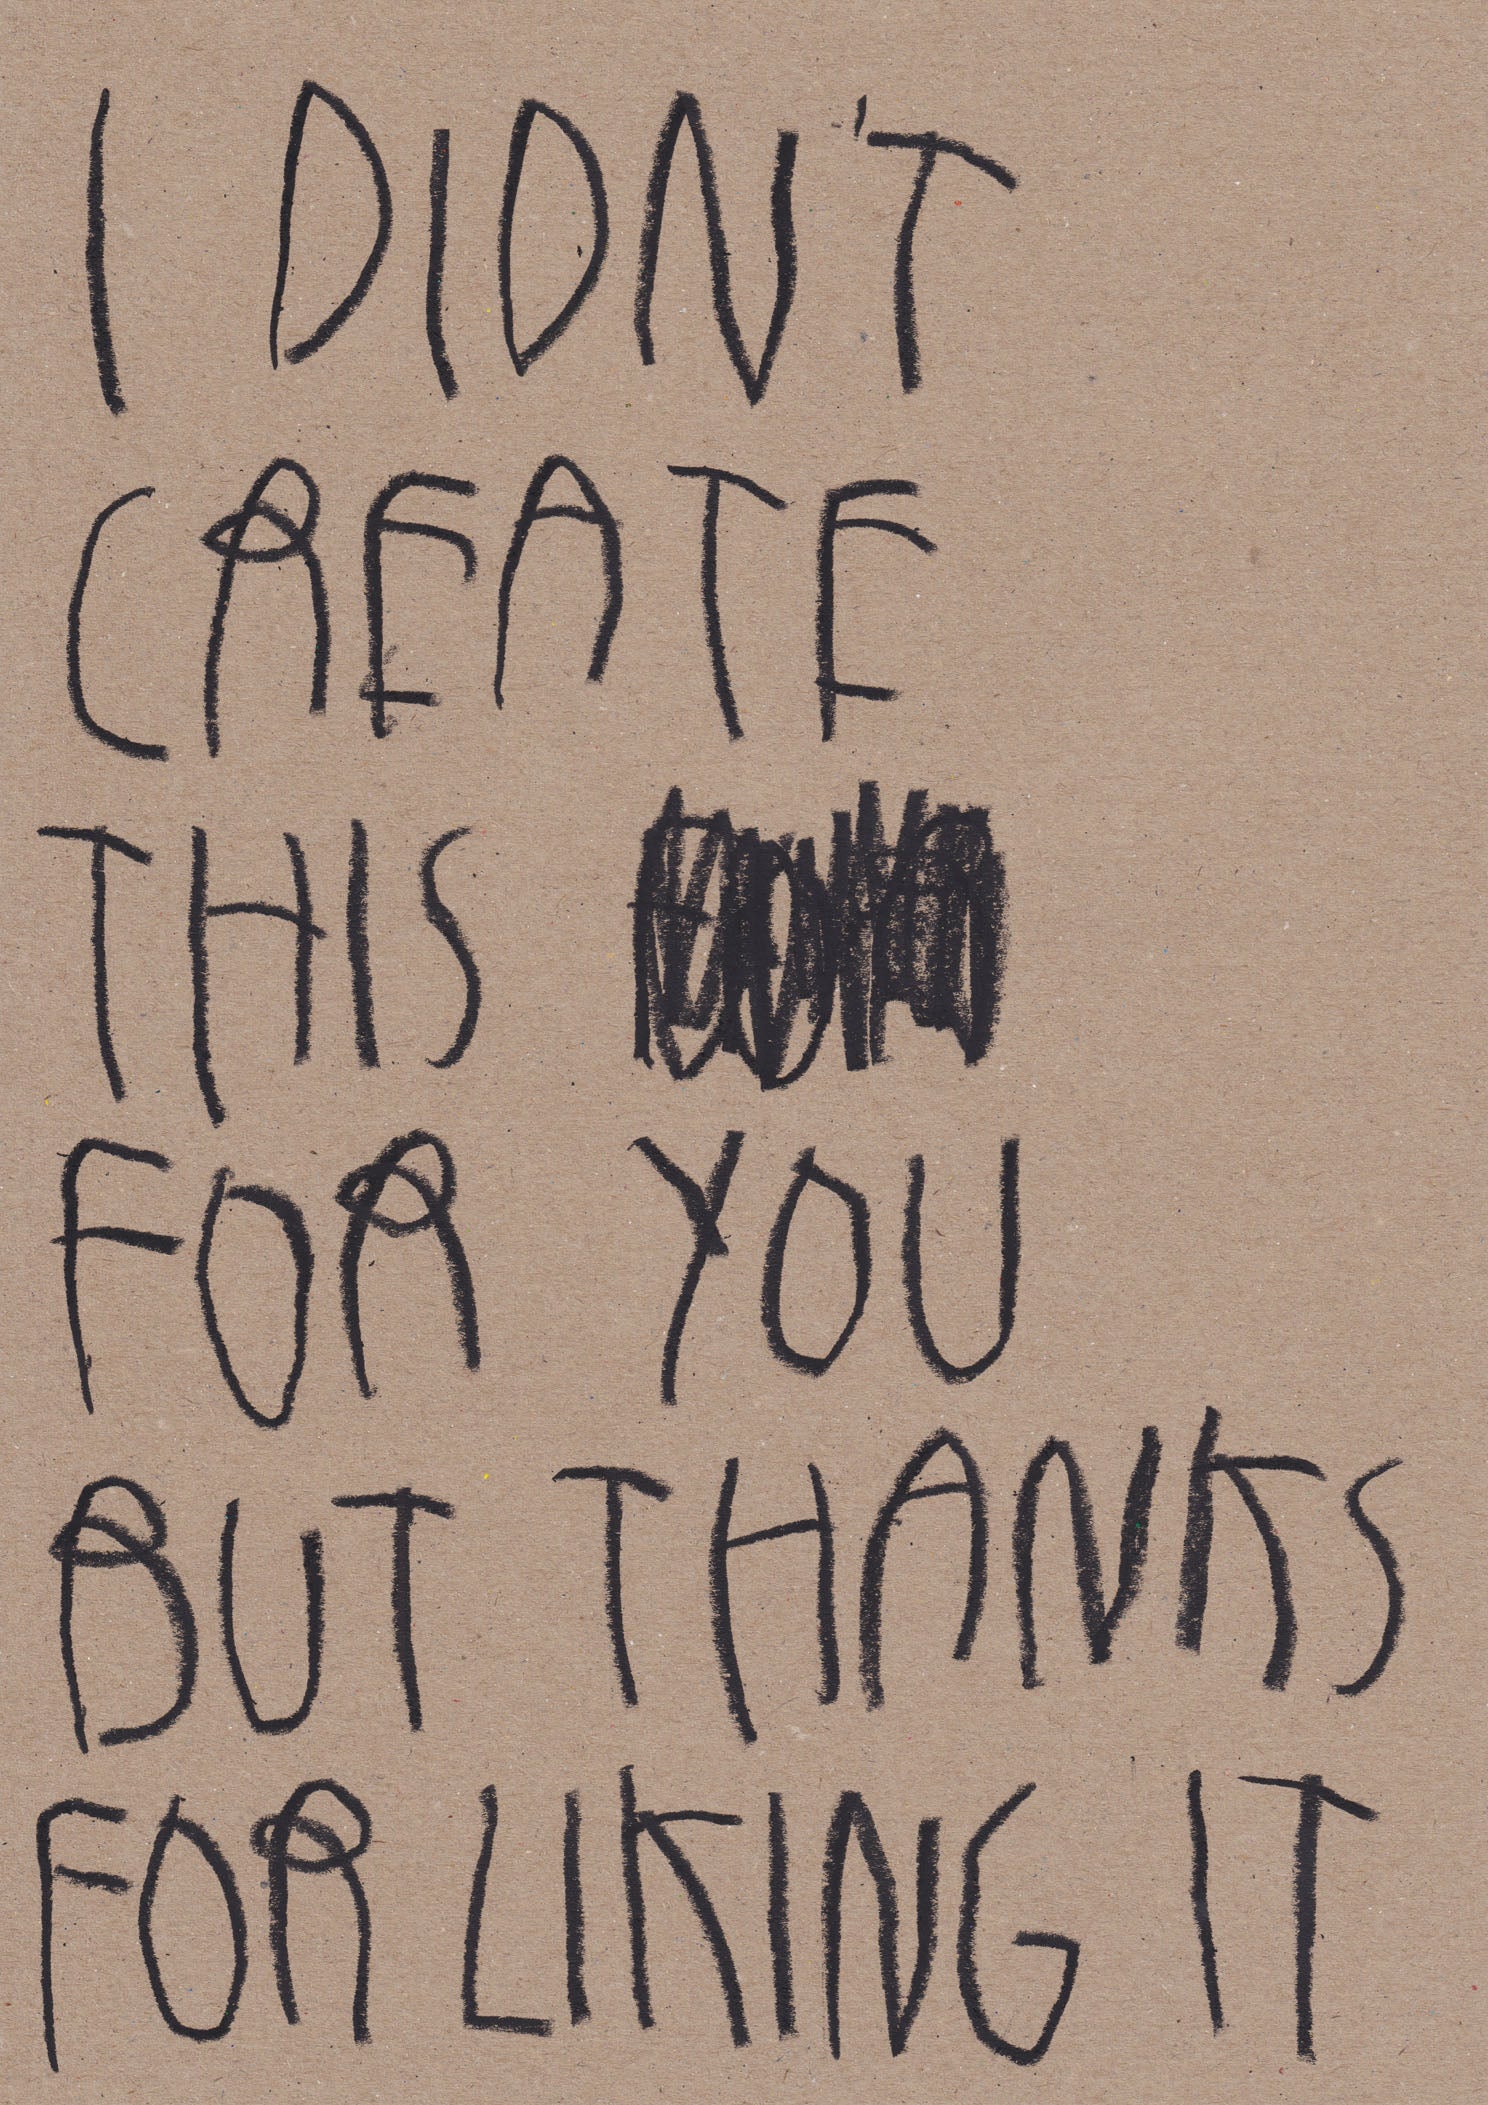 I DIDN'T
CREATE
THIS
FOR YOU
BUT THANKS
FOR LIKING IT